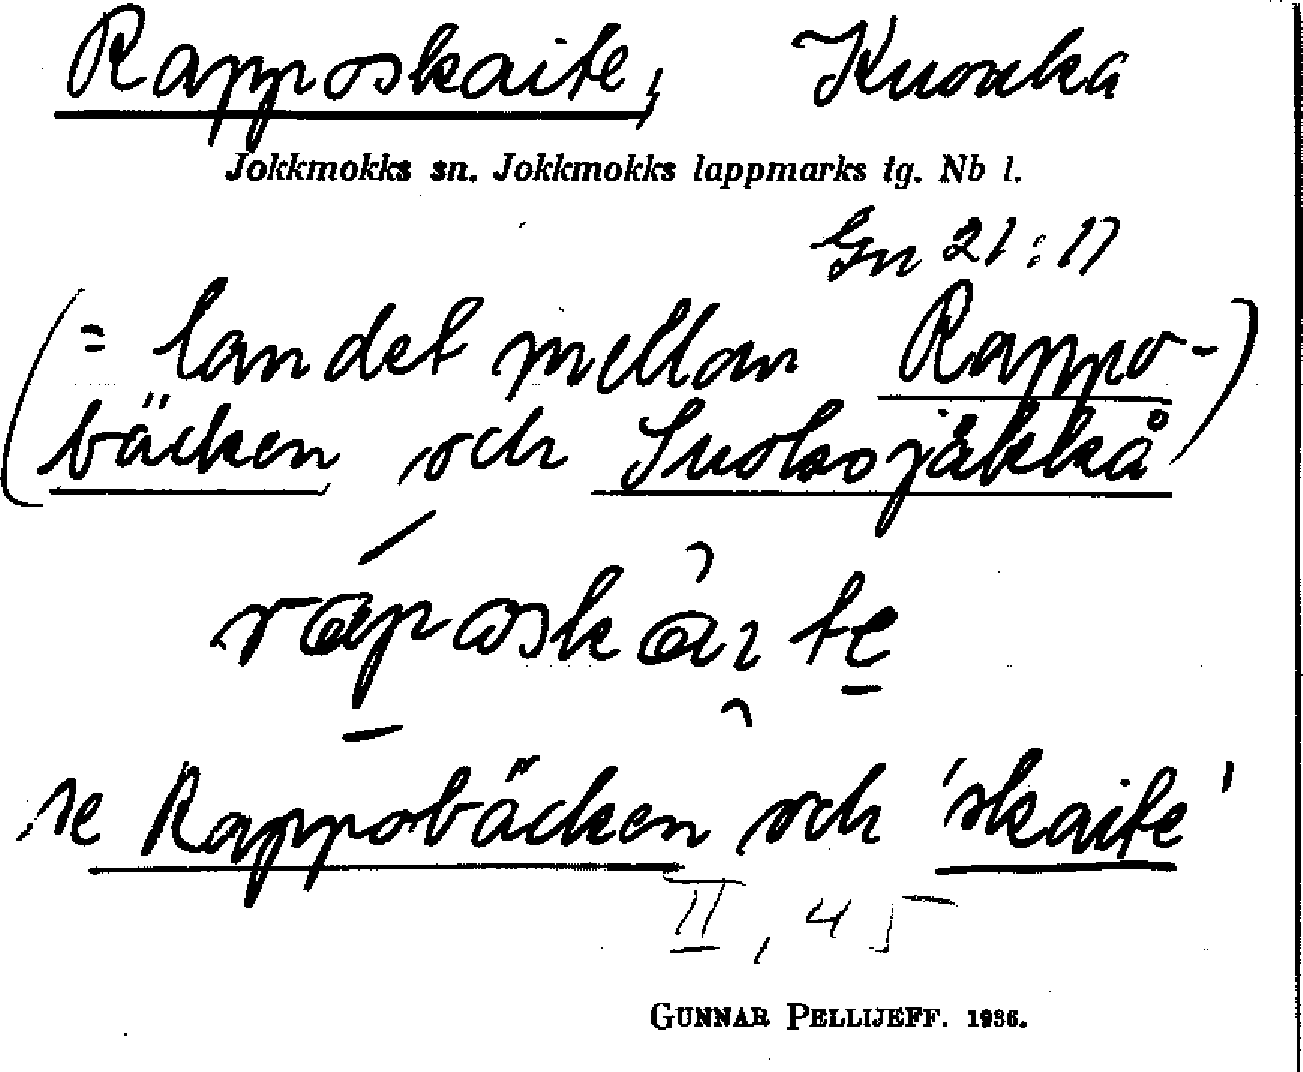 Rapposkaite, Kuouka
Jokkmokks sn. Jokkmokks lappmarks tg. Nb l.
Gn 21:17
(= landet mellan Rappo-)
bäcken och Suoksojåkkå
se Rappobäcken och 'skaite'
II, 45
GUNNAR PELLIJEFF. 1936.